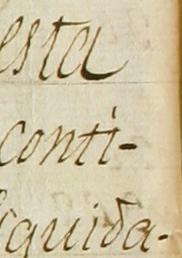 esta
conti-
iquida-